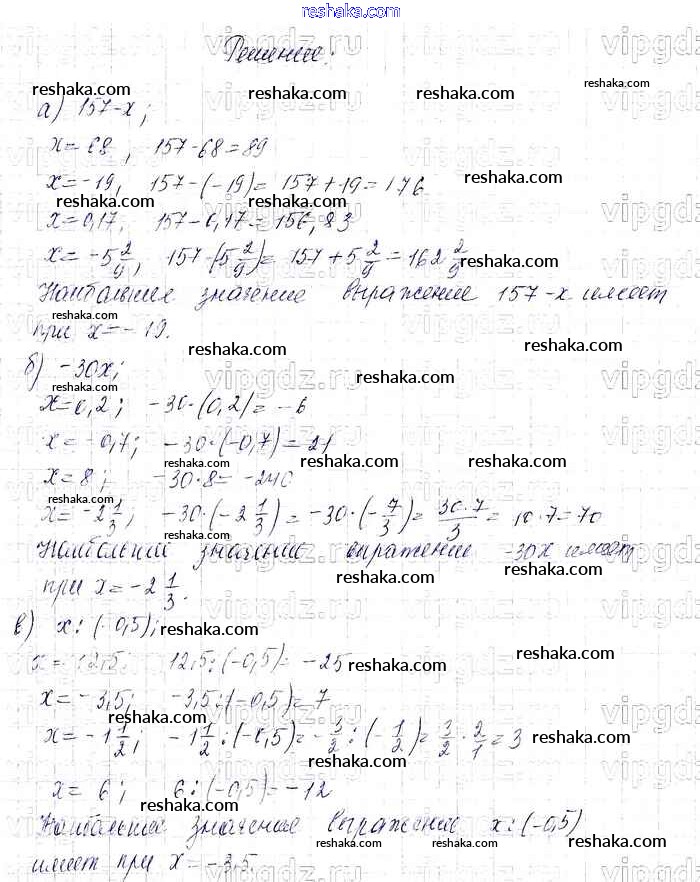 reshaka.com
Решение:
а) 157-x;
x=68, 157-68=89
x=-19, 157-(-19)=157+19=176
x=0,17, 157-0,17=156,83
x=-5 2/9, 157-(5 2/9)=157+5 2/9=162 2/9
Наибольшее значение выражение 157-x имеет
при x=-19.
б) -30x;
x=0,2; -30·(0,2)=-6
x=-0,7; -30·(-0,7)=21
x=8; -30·8=-240
x=-2 1/3; -30·(-2 1/3)=-30·(-7/3)=30·7/3=10·7=70
Наибольшее значение выражение -30x имеет
при x=-2 1/3.
в) x:(-0,5);
12,5:(-0,5)=-25
x=-3,5; -3,5:(-0,5)=7
x=-1 1/2; -1 1/2:(-0,5)=-3/2:(-1/2)=3/2·2/1=3
x=6; 6:(-0,5)=-12
Наибольшее значение выражение x:(-0,5)
имеет при x=-3,5